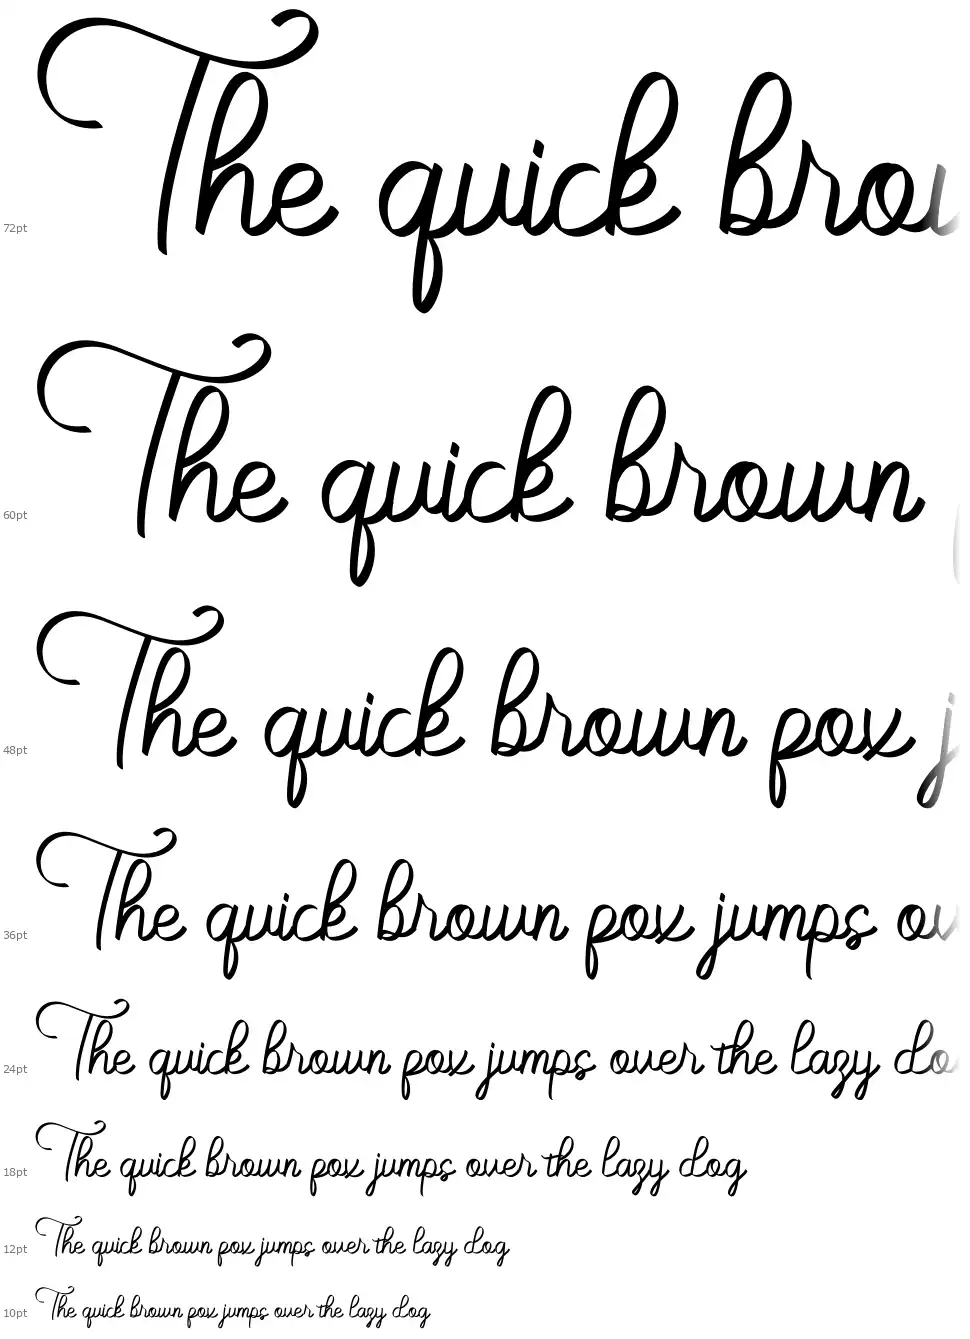 72pt The quick bro
60pt The quick brown
48pt The quick brown pox j
36pt The quick brown pox jumps ov
24pt The quick brown pox jumps over the lazy do
18pt The quick brown pox jumps over the lazy dog
12pt The quick brown pox jumps over the lazy dog
10pt The quick brown pox jumps over the lazy dog